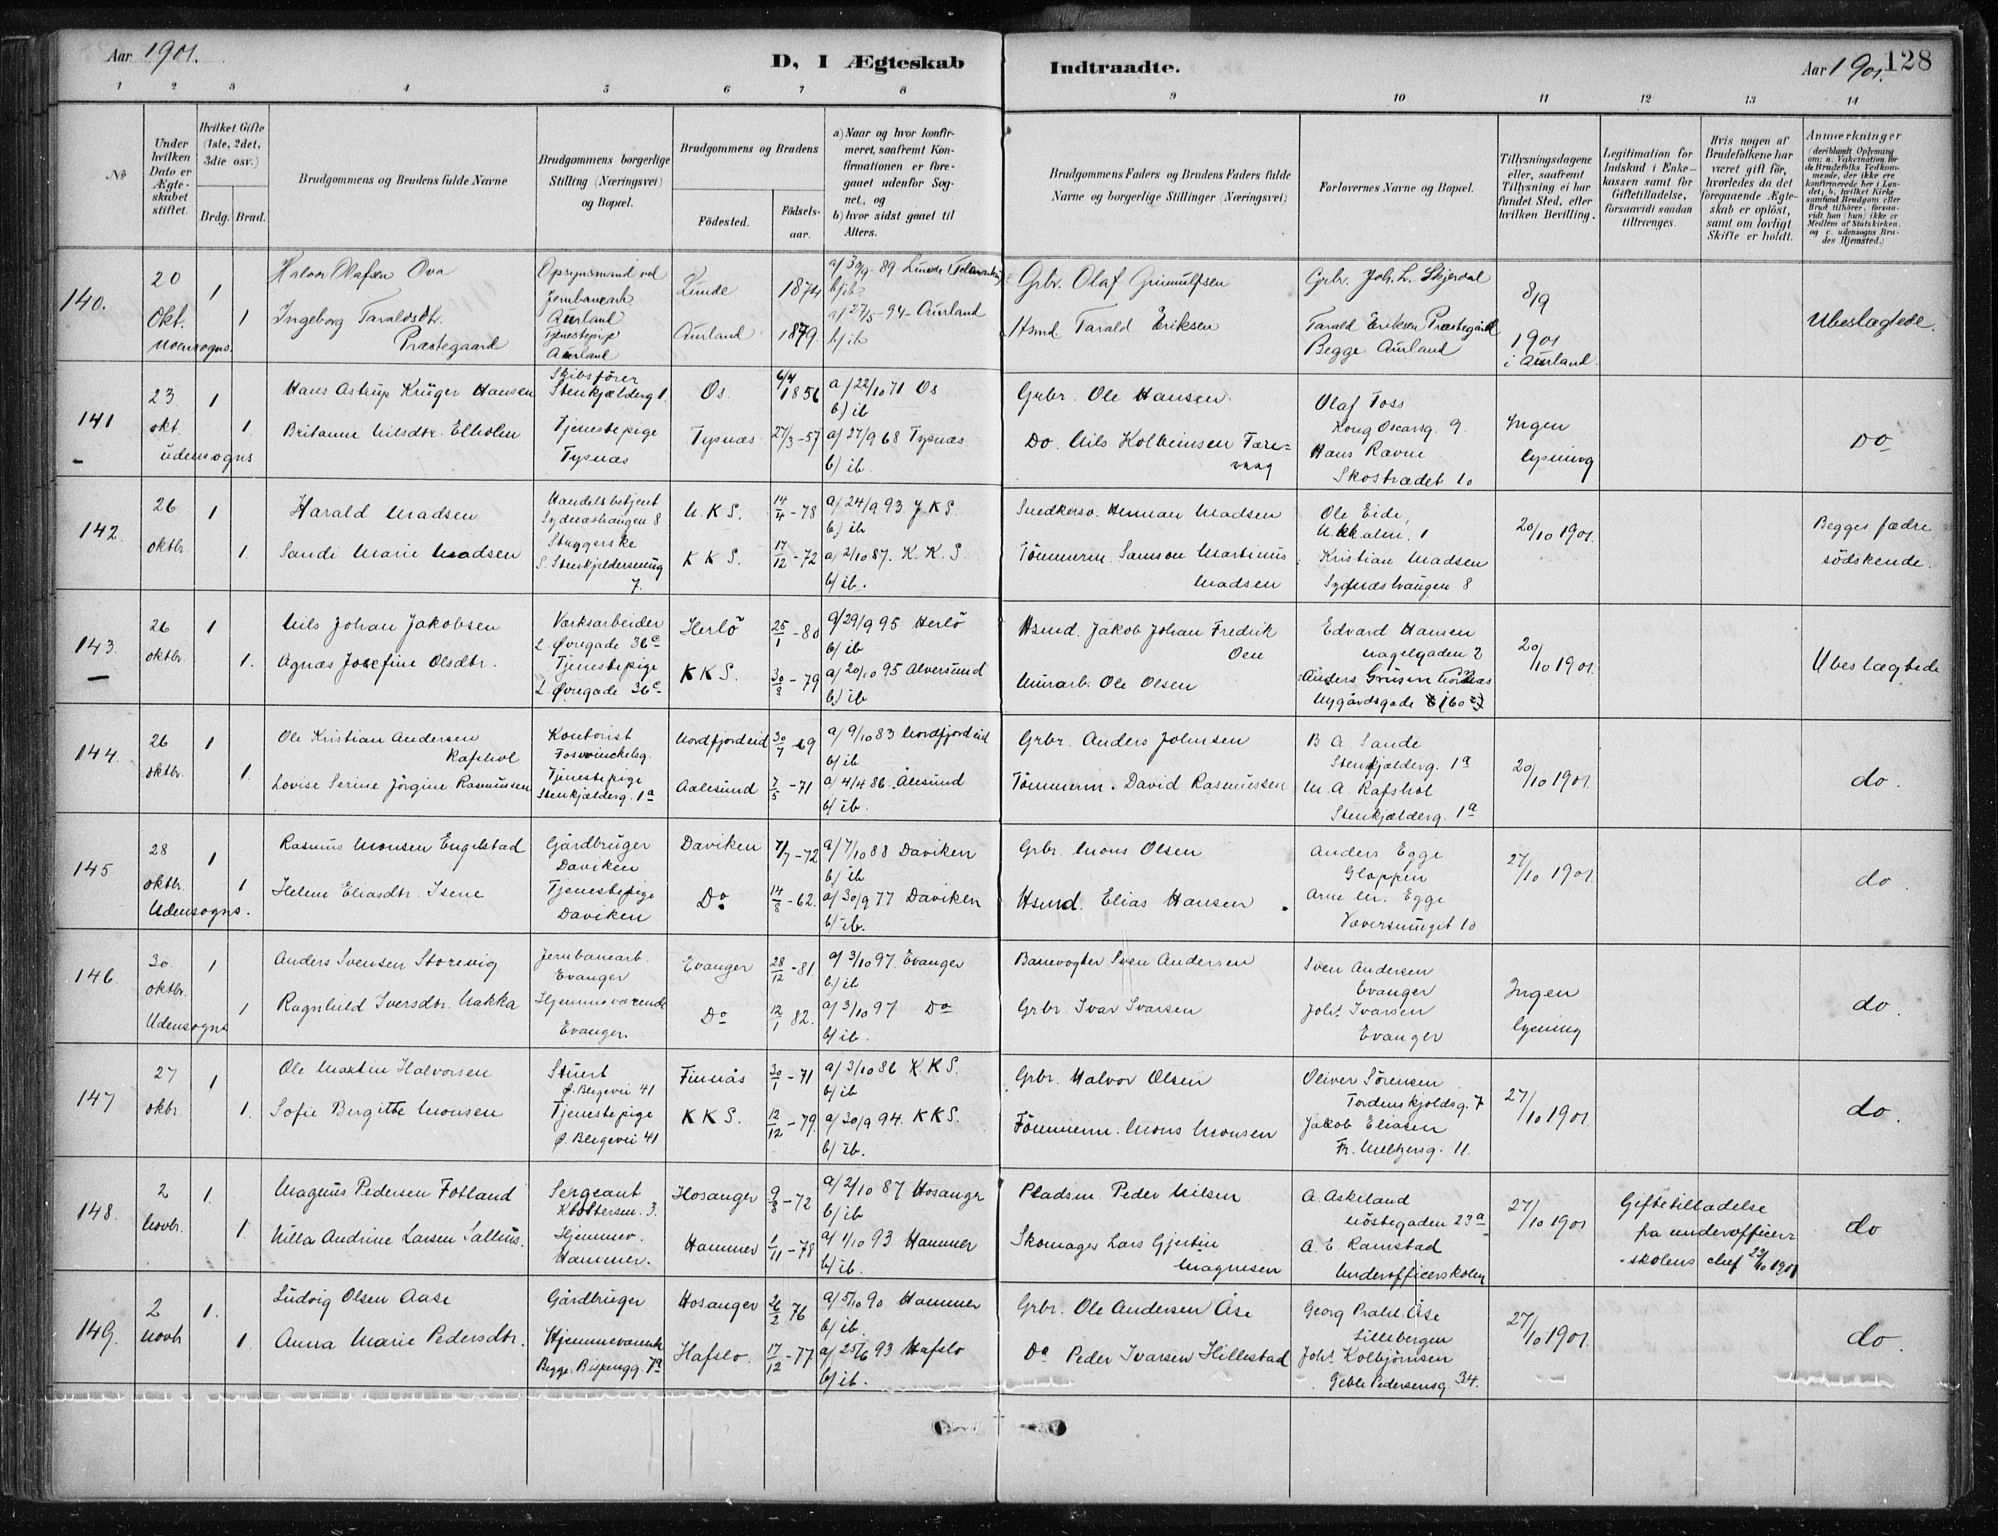 Aar 1901.
D, I Ægteskab Indtraadte.
Aar 1901. 128
1 2 3 4 5 6 7 8 9 10 11 12 13 14
No
Under hvilken Dato er Ægteskabet stiftet.
Hvilket Gifte (1ste, 2det, 3die osv.)
Brdg. Brud.
Brudgommens og Brudens fulde Navne
Brudgommens borgerlige Stilling (Næringsvei) og Bopæl.
Brudgommens og Brudens
Fødested. Fødsels-aar.
a) Naar og hvor konfirmeret, saafremt Konfirmationen er foregaaet udenfor Sognet, og
b) hvor sidst gaaet til Alters.
Brudgommens Faders og Brudens Faders fulde Navne og borgerlige Stillinger (Næringsvei)
Forlovernes Navne og Bopæl.
Tillysningsdagene eller, saafremt Tillysning ei har fundet Sted, efter hvilken Bevilling.
Legitimation for Indskud i Enkekassen samt for Giftetilladelse, forsaavidt saadan tiltrænges.
Hvis nogen af Brudefolkene har været gift før, hvorledes da det foregaaende Ægteskab er opløst, samt om lovligt Skifte er holdt.
Anmærkninger (deriblandt Oplysning om: a. Vakcination for de Brudefolks Vedkommende, der ikke ere konfirmerede her i Landet, b. hvilket Kirkesamfund Brudgom eller Brud tilhører, forsaavidt han (hun) ikke er Medlem af Statskirken, og c. udensogns Brudes Hjemsted.)
140. 20 Okt. Udensogns. 1 Halvor Olafsen Ova Opsynsmand ved Jernbanearb. Aurland Lunde 1874 a/ 89 Lunde i Telemarken b/ ib Grbr. Olaf Grimulfsen Grbr. Joh. L. Skjerdal 8/9 1901 i Aurland Ubeslægtede.
1 Ingeborg Taraldsdtr. Præstegaard Tjenestepige Aurland Aurland 1879. a/ 27/5-94 Aurland b/ ib Hsmd Tarald Eriksen Tarald Eriksen Præstegård Begge Aurland
141 23. okt. udensogns 1 Hans Astrup Krüger Hansen Skibsfører Stenkjælderg 1. Os. 6/4 1856 a/ 22/10 71 Os b) ib Grbr. Ole Hansen Olaf Foss Kong Oscarsg. 9. Ingen lysning Do
1 Britanne Nilsdtr. Elholm Tjenestepige Tysnæs Tysnæs 27/3-57 a/ 27/9 68 Tysnæs b) ib. Do. Nils Kolbeinsen Færevaag Hans Ravne Skostrædet 10
142. 26 oktbr. 1 Harald Madsen Handelsbetjent Sydnæshaugen 8 N.K S. 14/4-78 a/ 24/9 93 J.K S. b) ib. Snedkersv. Herman Madsen Ole Eide, 20/10 1901. Begges fædre södskende.
1. Sandi Marie Madsen Stuggerske S. Stenkjeldersmug 7. K K S. 17/12-72 a/ 2/10 87. K. K. S. b/ ib. Tömmerm. Samson Martinus Madsen Kristian Madsen Sydnæshaugen 8
143. 26 oktbr. 1 Nils Johan Jakobsen Værksarbeider L. Øvregade 36c Herlö 25/1-80 a/ 29/9 95 Herlö b/ ib Hsmd. Jakob Johan Fredrik Oen Edvard Hansen Nagelgaden 2 20/10 1901. Ubeslægtede
1. Agnæs Josefine Olsdtr. Tjenestepige L. Øvregade 36c K K S. 30/8-79 a/ 20/10 95 Alversund b) ib Murarb. Ole Olsen Anders Nygårdsgade
144. 26 oktbr. 1 Ole Kristian Andersen Rafshol Kontorist Fosvinckelsg. Nordfjordeid 30/7 69 a/ 9/10 83 Nordfjordeid b/ ib Grbr. Anders Johnsen B A. Sande Stenkjælderg. 1a 20/10 1901. do.
1. Lovise Serine Jörgine Rasmussen Tjenestepige Stenkjælderg. 1a Aalesund 7/5-71 a/ 4/4 86. Ålesund b/ ib. Tömmerm. David Rasmussen M. A. Rafshol Stenkjælderg. 1a
145 28 oktbr. Udensogns. 1 Rasmus Monsen Engelstad Gårdbruger Daviken Daviken 7/7-72 a/ 7/10 88 Daviken b/ ib. Grbr. Mons Olsen Anders Egge Gloppen 27/10 1901. do.
1 Helene Eliasdtr. Isene Tjenestepige Daviken Do 14/8-62. a/ 30/9 77 Daviken b/ ib. Hsmd. Elias Hansen Arne M. Egge Væversmuget 10
146. 30. oktbr. Udensogns 1 Anders Svensen Storevig Jernbanearb. Evanger Evanger 28/12-81 a/ 3/10 97. Evanger b/ ib Banevogter Sven Andersen Sven Andersen Evanger Ingen lysning do.
1 Ragnhild Iversdtr. Nakka Hjemmeværende Evanger. Do 12/1 82. a/ 3/10 97 Do b/ ib. Grbr. Ivar Ivarsen Johs. Ivarsen Evanger
147 27 oktbr. 1 Ole Martin Halvorsen Stuert Ø. Blegevei 41 Finnås 30/1-71 a/ 3/10 86 K K S. b/ ib Grbr. Halvor Olsen Oliver Sörensen Tordenskjoldsg. 7 27/10 1901. do.
1. Sofie Bergitte Monsen Tjenestepige Ø. Blegevei 41 K K S. 12/12-79. a/ 30/9 94. K K S. b/ ib. Tömmerm. Mons Monsen Jakob Eliasen Fr. Meltzersg. 11.
148. 2 Novbr. 1. Magnus Pedersen Fotland Sergeant Klostersm. 3. Hosanger 9/8-72 a/ 2/10 87 Hosanger b/ ib Pladsm. Peder Nilsen A. Askeland Nöstegaden 23a 27/10 1901 Giftetilladelse fra underofficersskolens chef 23/10 1901 do
1 Nilla Andrine Larsen Salhus. Hjemmev. Hammer. Hammer 1/11-78 a/ 1/10 93 Hammer b/ ib. Skomager Lars Gjertin Magnesen A. E. Ramstad Underofficerskolen
149. 2 Novbr 1. Ludvig Olsen Aase Gårdbruger Hosanger 26/2 76 a/ 5/10 90 Hammer b/ ib. Grbr. Ole Andersen Åse Georg Prahl Åse Lillebergen 27/10 1901. do.
1 Anna Marie Pedersdtr. Hjemmeværende Begge: Bispengg. 7a Hafslo. 17/12-77 a/ 25/6 93 Hafslo b/ ib. Do Peder Ivarsen Hillestad Johs. Kolbjörnsen Geble Pedersensg. 34.